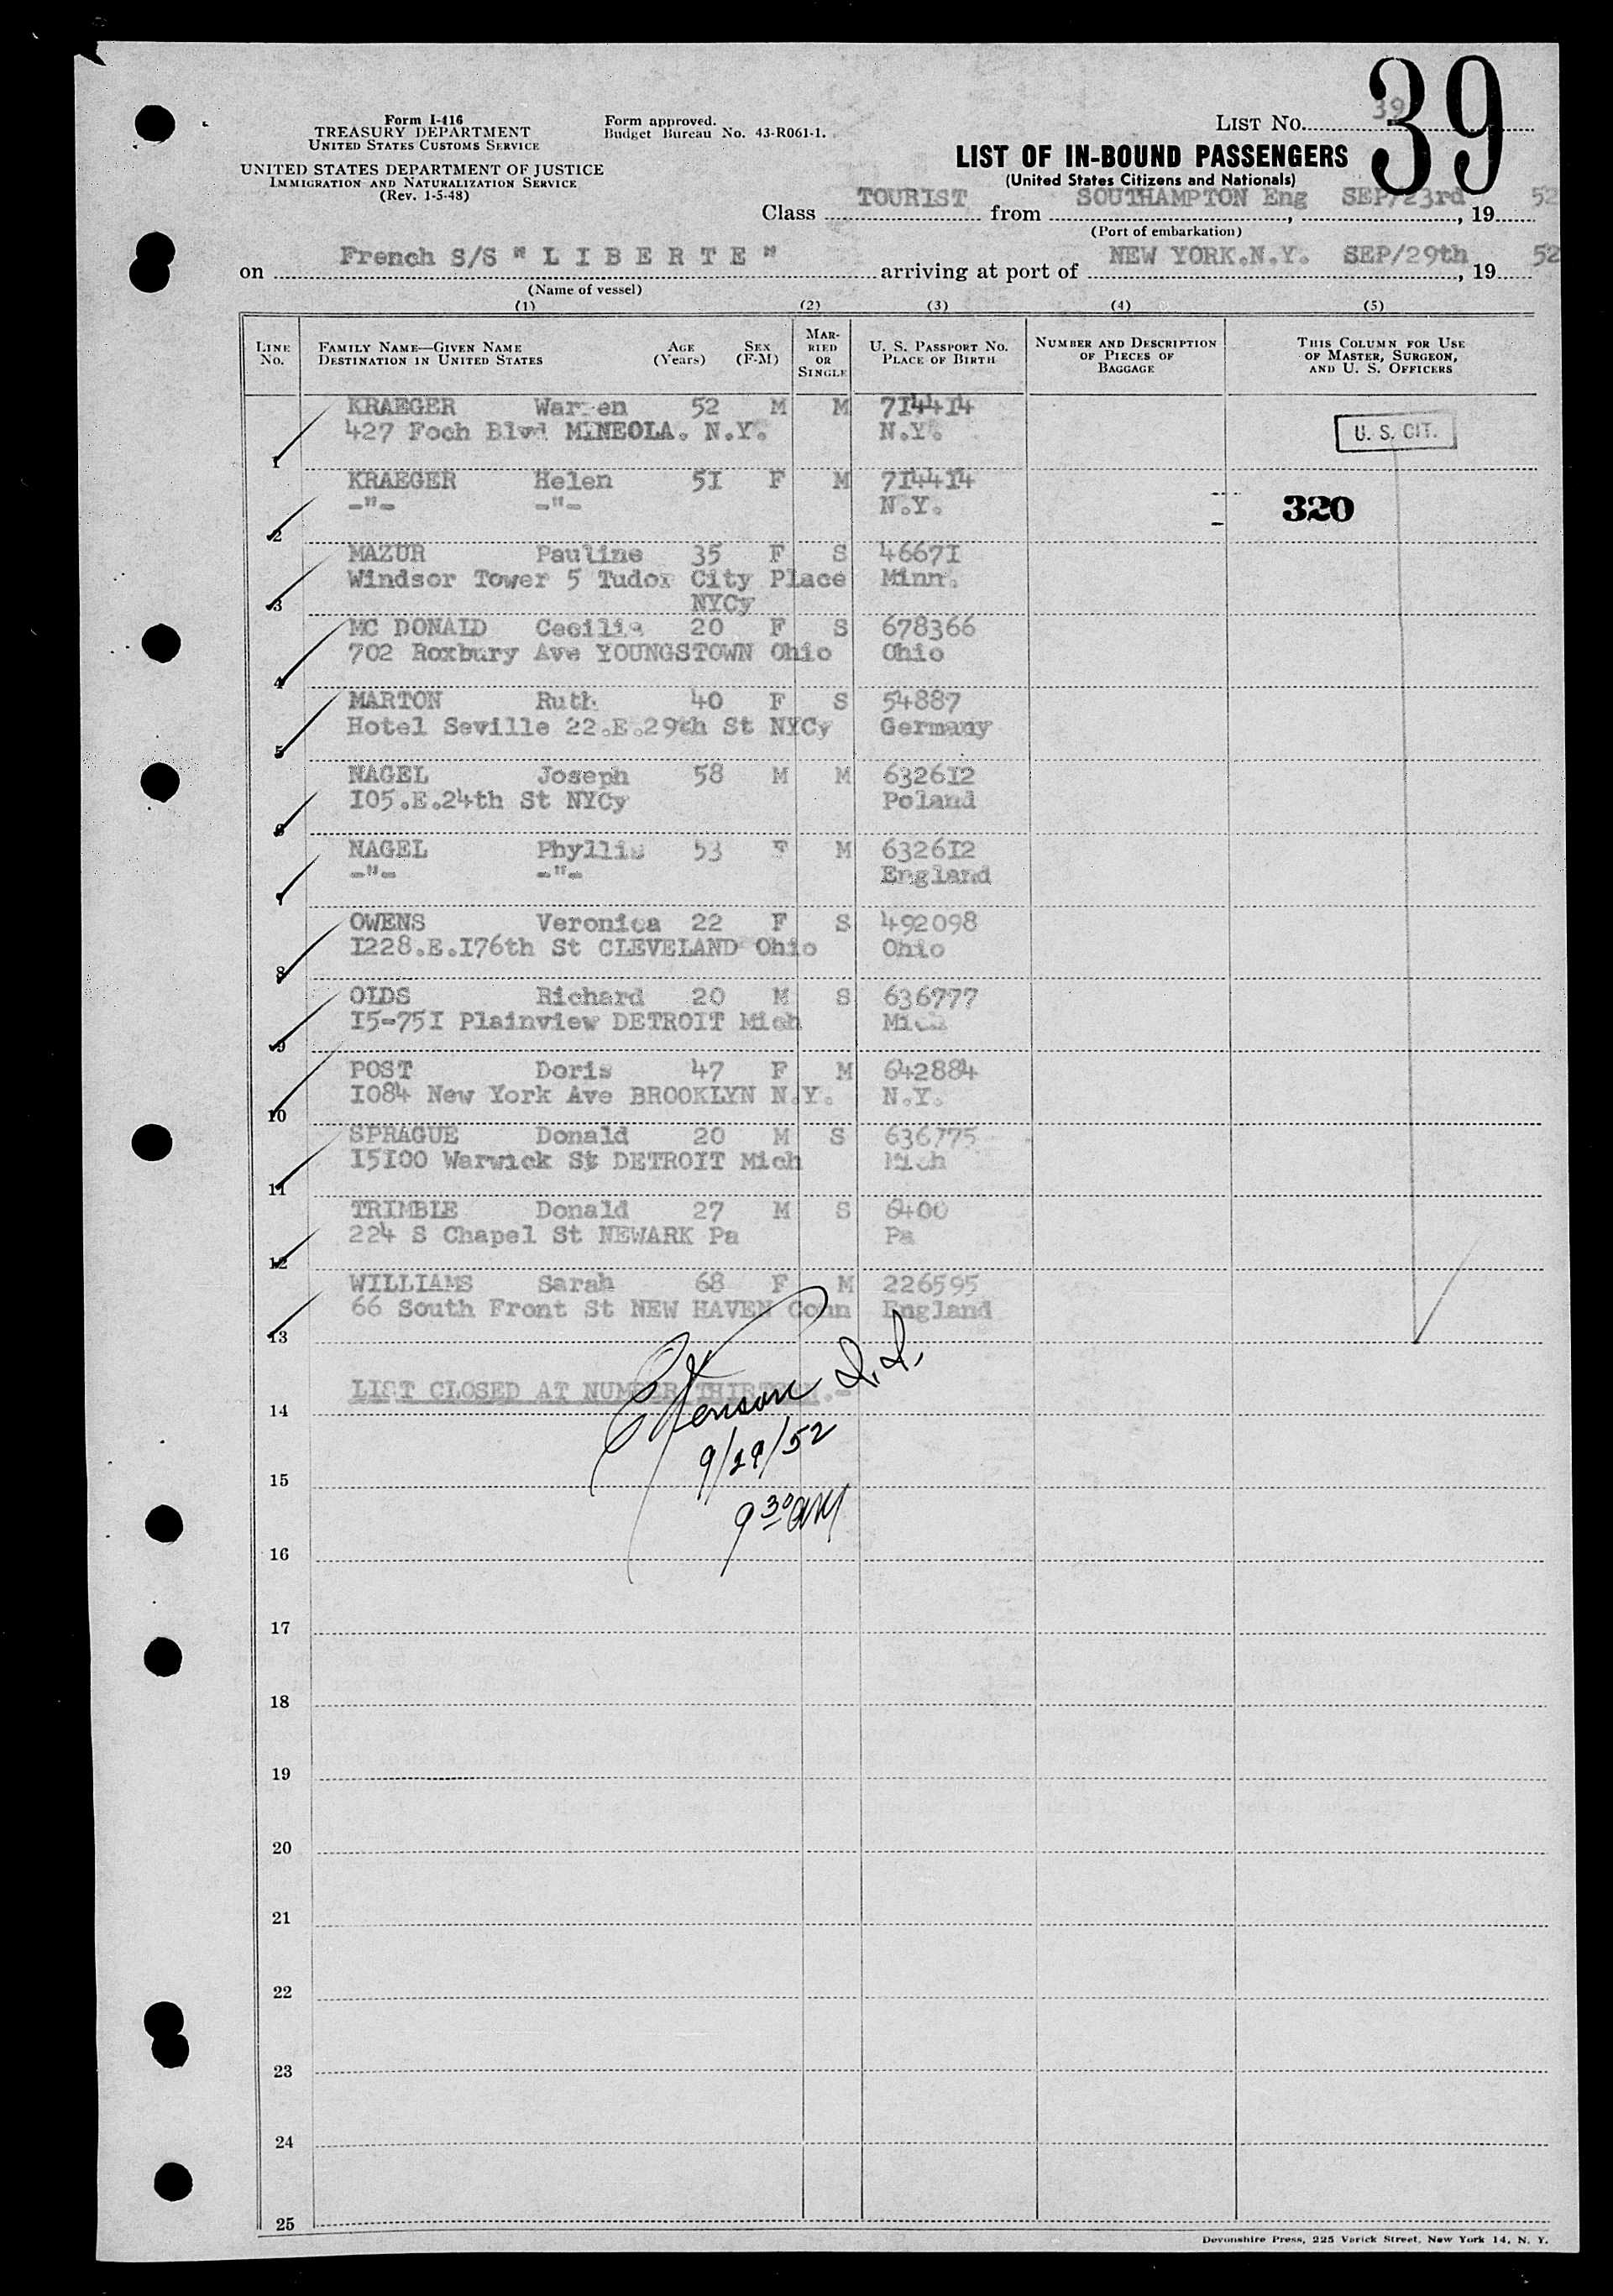 39
Form I-416
TREASURY DEPARTMENT
UNITED STATES CUSTOMS SERVICE
UNITED STATES DEPARTMENT OF JUSTICE
IMMIGRATION AND NATURALIZATION SERVICE
(Rev. 1-5-48)
Form approved.
Budget Bureau No. 43-R061-1.
LIST No. 39
LIST OF IN-BOUND PASSENGERS
(United States Citizens and Nationals)
Class TOURIST from SOUTHAMPTON Eng, SEP/23rd, 19 52
(Port of embarkation)
on French S/S "L I B E R T E" arriving at port of NEW YORK.N.Y. SEP/29th, 19 52
(Name of vessel)
(1) (2) (3) (4) (5)
LINE No. FAMILY NAME—GIVEN NAME DESTINATION IN UNITED STATES AGE (Years) SEX (F-M) MARRIED OR SINGLE U. S. PASSPORT No. PLACE OF BIRTH NUMBER AND DESCRIPTION OF PIECES OF BAGGAGE THIS COLUMN FOR USE OF MASTER, SURGEON, AND U. S. OFFICERS
KRAEGER Warren 52 M M 7I44I4
1 427 Foch Blvd MINEOLA. N.Y. N.Y. U. S. CIT.
KRAEGER Helen 5I F M 7I44I4
2 -"- -"- N.Y. 320
MAZUR Pauline 35 F S 4667I
Windsor Tower 5 Tudor City Place Minn.
3 NYCy
MC DONALD Cecilia 20 F S 678366
4 702 Roxbury Ave YOUNGSTOWN Ohio Ohio
MARTON Ruth 40 F S 54887
5 Hotel Seville 22.E.29th St NYCy Germany
NAGEL Joseph 58 M M 6326I2
6 I05.E.24th St NYCy Poland
NAGEL Phyllis 53 F M 6326I2
7 -"- -"- England
OWENS Veronica 22 F S 492098
8 I228.E.I76th St CLEVELAND Ohio Ohio
OLDS Richard 20 M S 636777
9 I5-75I Plainview DETROIT Mich Mich
POST Doris 47 F M 642884
10 I084 New York Ave BROOKLYN N.Y. N.Y.
SPRAGUE Donald 20 M S 636775
11 I5I00 Warwick St DETROIT Mich Mich
TRIMBLE Donald 27 M S 6400
12 224 S Chapel St NEWARK Pa Pa
WILLIAMS Sarah 68 F M 226595
13 66 South Front St NEW HAVEN Conn England
14 LIST CLOSED AT NUMBER THIRTEEN.-
9/29/52
15
9 30 AM
16
17
18
19
20
21
22
23
24
25
Devonshire Press, 225 Varick Street, New York 14, N. Y.